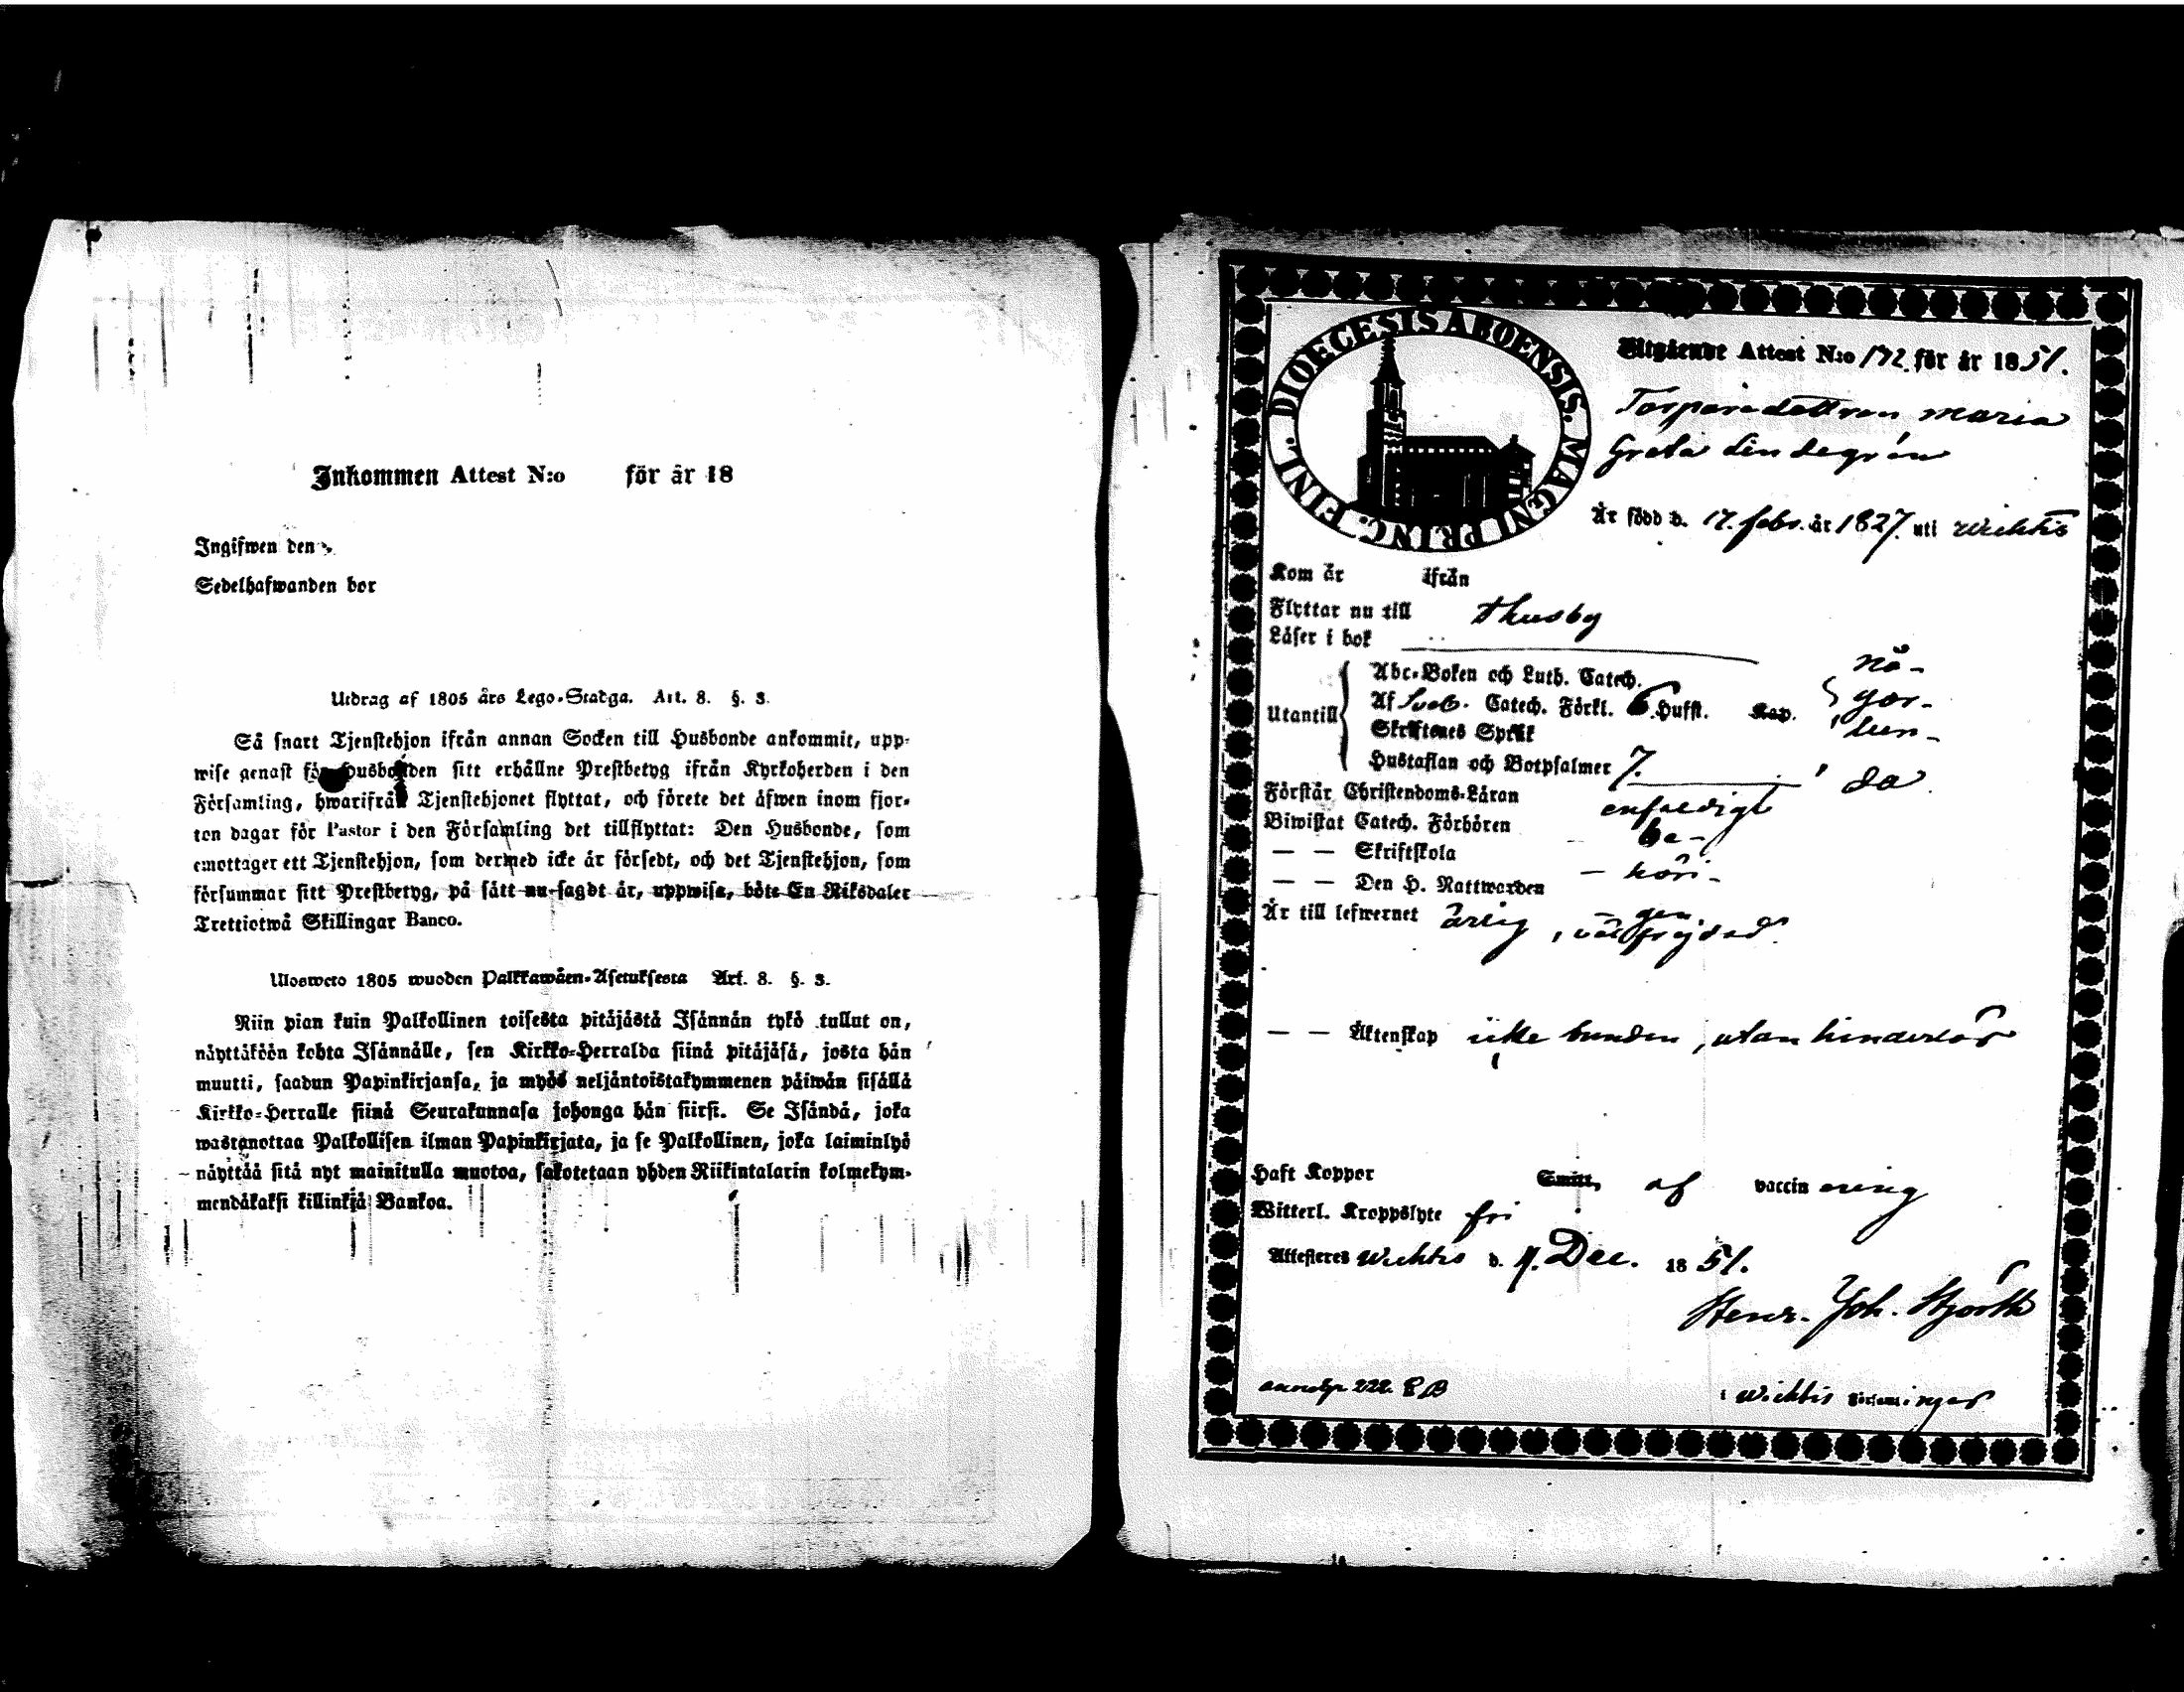 Inkommen Attest N:o för år 18
Ingifwen den
Sedelhafwanden bor
Utdrag af 1805 års Lego-Stadga. Art. 8. §. 3.
Så snart Tjenstehjon ifrån annan Socken till Husbonde ankommit, upp-
wise genast för Husbonden sitt erhållne Prestbetyg ifrån Kyrkoherden i den
Församling, hwarifrån Tjenstehjonet flyttat, och förete det äfwen inom fjor-
ton dagar för Pastor i den Församling det tillflyttat: Den Husbonde, som
emottager ett Tjenstehjon, som dermed icke är försedt, och det Tjenstehjon, som
försummar sitt Prestbetyg, på sätt nu sagdt är, uppwisa, böte En Riksdaler
Trettiotwå Skillingar Banco.
Ulosweto 1805 wuoden Palkkawäen-Asetuksesta Art. 8. §. 3.
Niin pian kuin Palkollinen toisesta pitäjästä Isännän tykö tullut on,
näyttäköön kohta Isännälle, sen Kirkko-Herralda siinä pitäjäsä, josta hän
muutti, saadun Papinkirjansa, ja myös neljäntoistakymmenen päiwän sisällä
Kirkko-Herralle siinä Seurakunnasa johonga hän siirsi. Se Isändä, joka
wastanottaa Palkollisen ilman Papinkirjata, ja se Palkollinen, joka laiminlyö
näyttää sitä nyt mainitulla muotoa, sakotetaan yhden Riikintalarin kolmekym-
mendäkaksi killinkiä Bankoa.
DIOECESIS ABOENSIS. MAGNI PRINC. FINL.
Utgående Attest N:o 172. för år 1851.
Torparedottren Maria
Greta Lindegrén
Är född d. 17. febr. år 1827. uti Wichtis
Kom år ifrån
Flyttar nu till Thusby
Läser i bok
Utantill
Abc-Boken och Luth. Catech.
Af Sveb. Catech. Förkl. 6. Hufst. Kap.
Skriftenes Språk
Hustaflan och Botpsalmer 7.
nå-
gor-
lun-
da
Förstår Christendoms-Läran enfaldigt
Biwistat Catech. Förhören be-
— — Skriftskola - höri-
— — Den H. Nattwarden - gen.
Är till lefwernet ärlig, välfrejdad.
— — Äktenskap icke bunden, utan hinderlös
Haft Koppor Smitt, af vaccinering
Witterl. Kroppslyte fri
Attesteres Wichtis d. 4. Dec. 1851.
Henr. Joh. Hjorth
222. C B
i Wichtis Församlingar